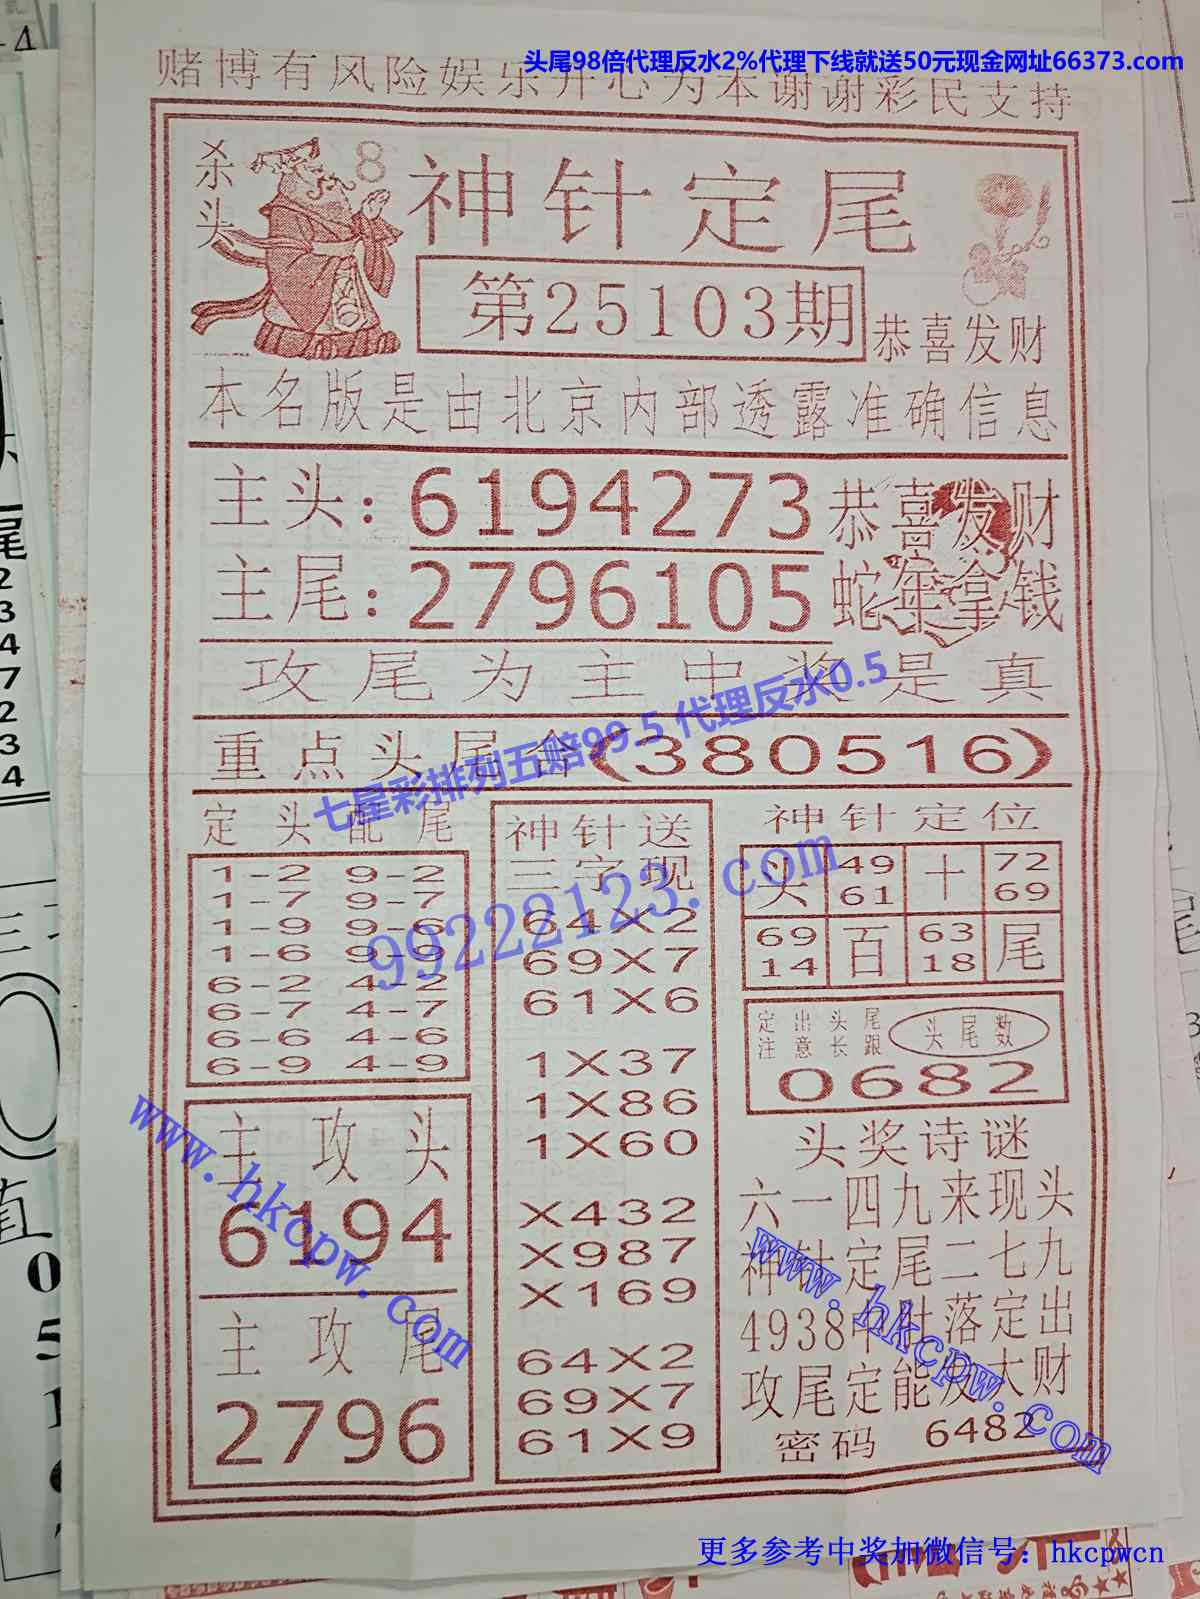 头尾98倍代理反水2%代理下线就送50元现金网址66373.com
赌博有风险娱乐开心为本谢谢彩民支持
杀头
8
神针定尾
第25103期
恭喜发财
本名版是由北京内部透露准确信息
主头：6194273
恭喜发财
主尾：2796105
蛇年拿钱
攻尾为主中奖是真
重点头尾合(380516)
七星彩排列五赔99.5 代理反水0.5
99222123.com
定头配尾
1-2 9-2
1-7 9-7
1-9 9-6
1-6 9-9
6-2 4-2
6-7 4-7
6-6 4-6
6-9 4-9
主攻头
6194
主攻尾
2796
www.hkcpw.com
神针送
三字现
64X2
69X7
61X6
1X37
1X86
1X60
X432
X987
X169
64X2
69X7
61X9
神针定位
头 49 61 十 72 69
69 14 百 63 18 尾
定出头尾
注意长跟
头尾数
0682
头奖诗谜
六一四九来现头
神针定尾二七九
4938中肚落定出
攻尾定能发大财
密码 6482
www.hkcpw.com
更多参考中奖加微信号：hkcpwcn